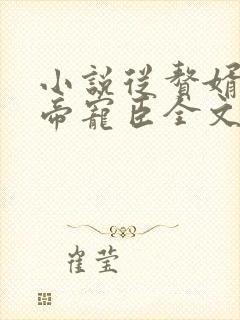 小說從贅婿
帝寵臣全文
崔莹